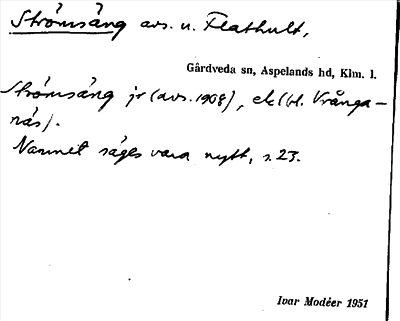 Strömsäng avs. u. Flathult,
Gårdveda sn, Aspelands hd, Klm. l.
Strömsäng jr (avs. 1908), ek (bl. Vrånga-
näs).
Namnet säges vara nytt, s. 23.
Ivar Modéer 1951